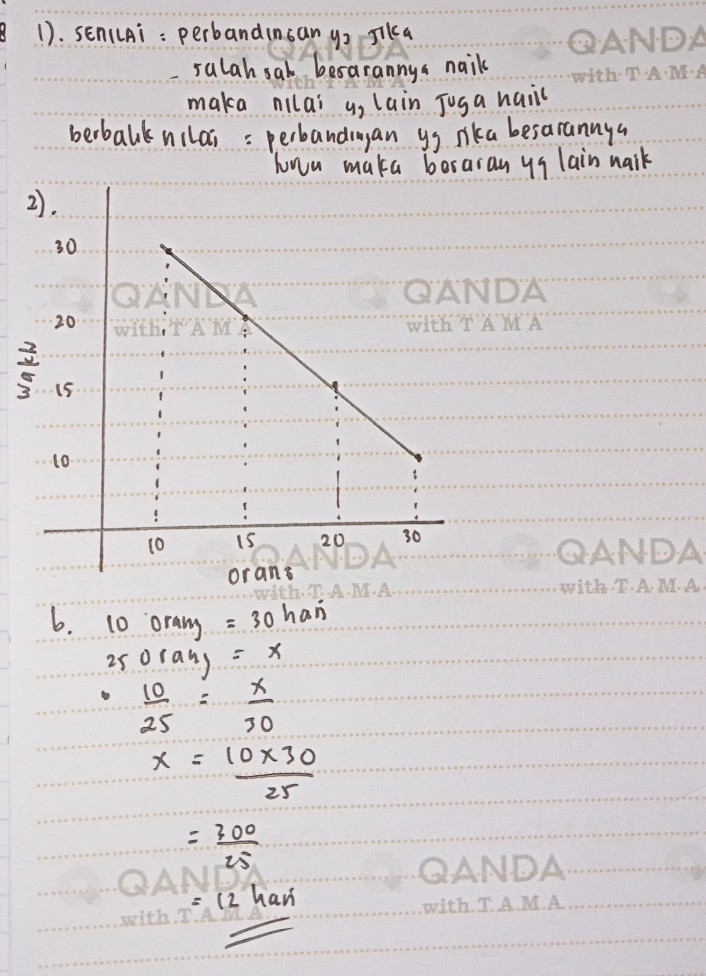 1). SENILAI : perbandingan yg Jika
- salah sab besarannya naik
maka nilai yg lain Juga naik
berbalik nilai : perbandingan yg jika besarannya
turun maka besaran yg lain naik
2).
30
20
15
10
waktu
10 15 20 30
orang
b. 10 orang = 30 hari
25 orang = x
• 10/25 = x/30
x = 10x30/25
= 300/25
= 12 hari
QANDA
with T A M A
QANDA
with T A M A
QANDA
with T A M A
QANDA
with T A M A
QANDA
with T.A.M.A
QANDA
with T.A.M.A
QANDA
with T.A M A
QANDA
with T.A M A